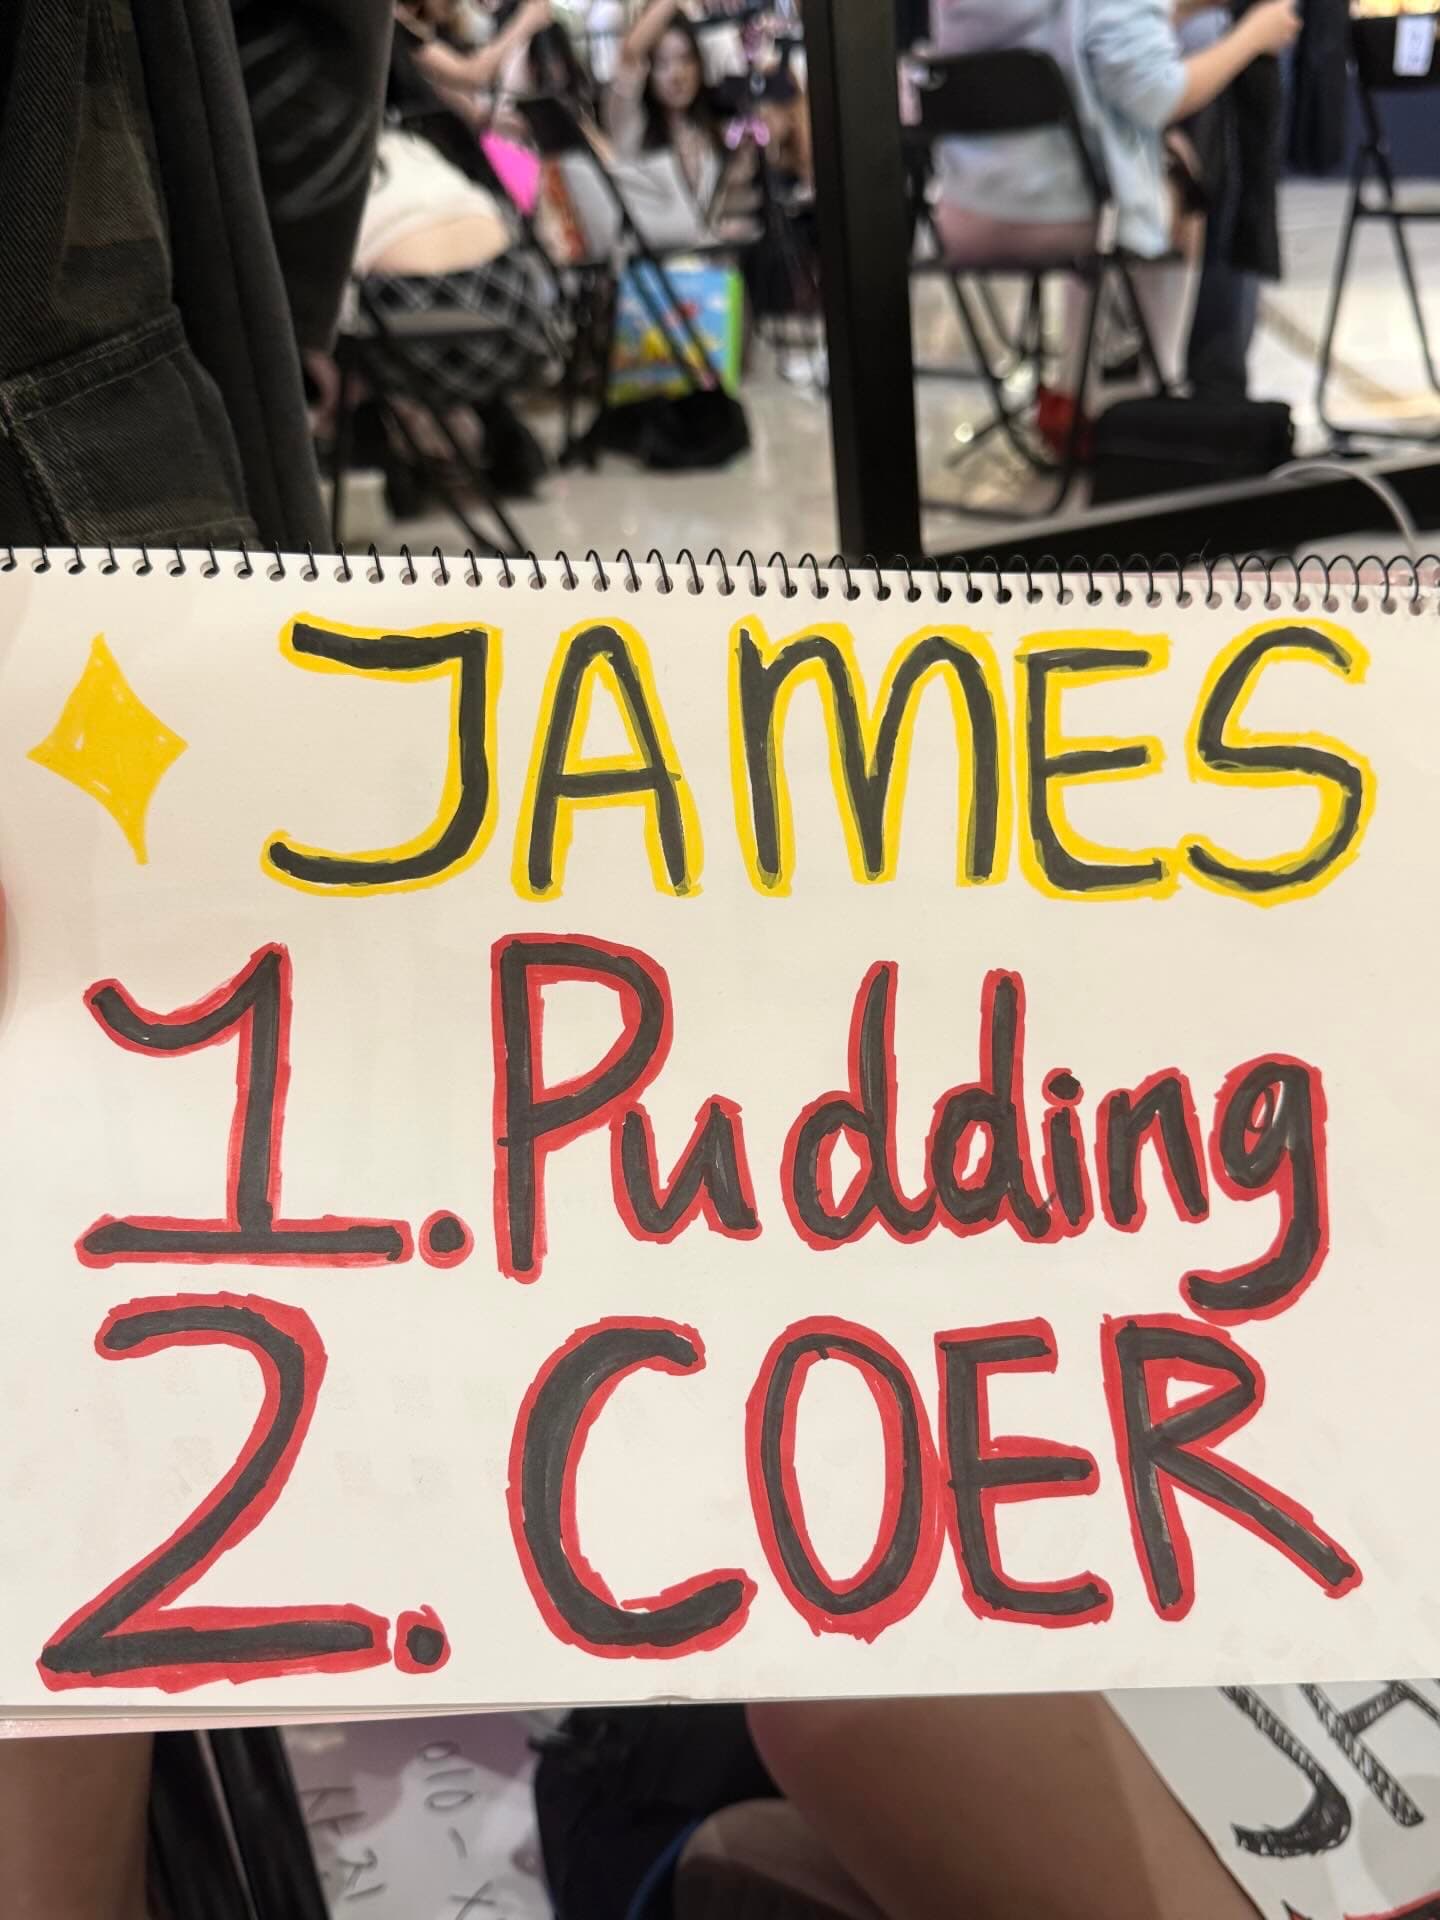 JAMES
1. Pudding
2. COER
JA